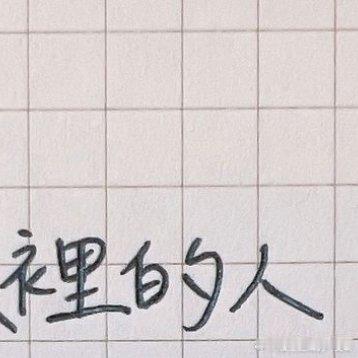 裡的人